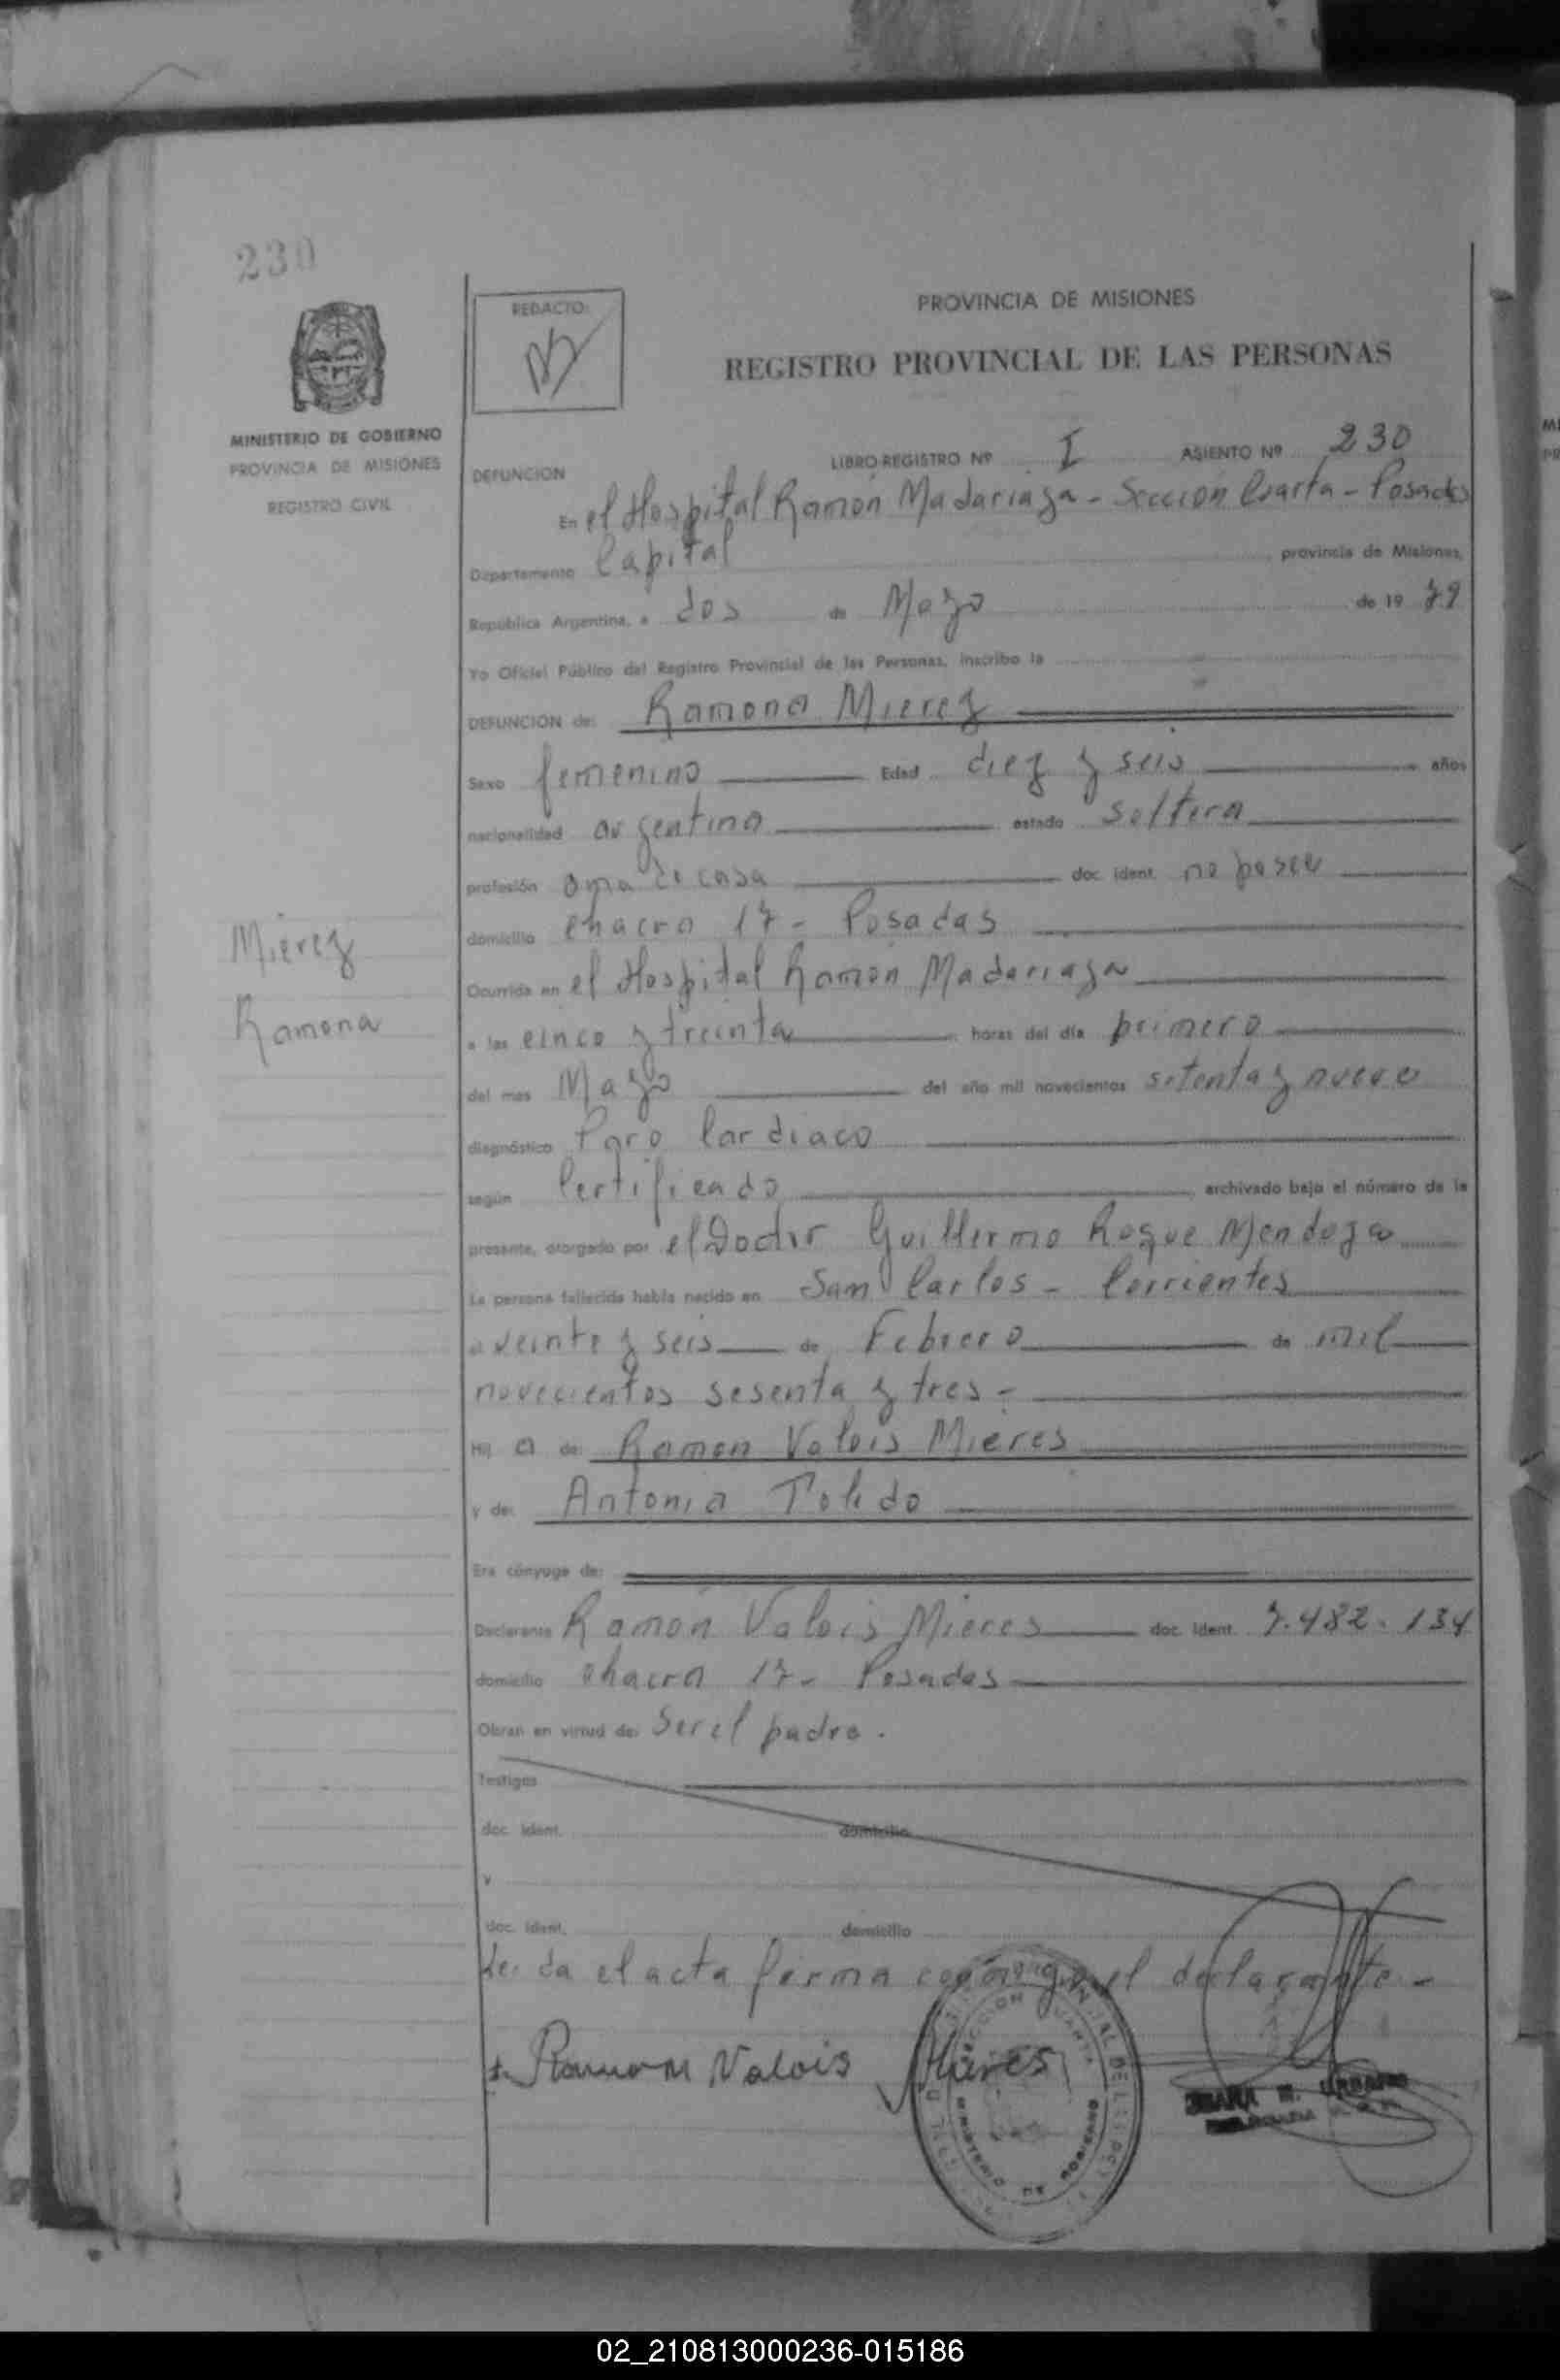 230
REDACTO:
PROVINCIA DE MISIONES
REGISTRO PROVINCIAL DE LAS PERSONAS
MINISTERIO DE GOBIERNO
PROVINCIA DE MISIONES
REGISTRO CIVIL
DEFUNCION
LIBRO-REGISTRO Nº I ASIENTO Nº 230
En el Hospital Ramón Madariaga - Sección Cuarta - Posadas
Departamento Capital provincia de Misiones,
República Argentina, a dos de Mayo de 19 79
Yo Oficial Público del Registro Provincial de las Personas, inscribo la
DEFUNCION de: Ramona Mierez
Sexo femenino Edad diez y seis años
nacionalidad argentina estado soltera
profesión ama de casa doc. ident. no posee
domicilio chacra 17 - Posadas
Mierez
Ramona
Ocurrida en el Hospital Ramón Madariaga
a las cinco y treinta horas del día primero
del mes Mayo del año mil novecientos setenta y nueve
diagnóstico Paro Cardiaco
según Certificado archivado bajo el número de la
presente, otorgado por el Doctor Guillermo Roque Mendoza
La persona fallecida había nacido en San Carlos - Corrientes
a veinte y seis de Febrero de mil
novecientos sesenta y tres -
Hij a de: Ramon Valois Mieres
y de: Antonia Toledo
Era cónyuge de:
Declarante Ramón Valois Mieres doc. ident. 7.482.134
domicilio chacra 17 - Posadas
Obran en virtud de: Ser el padre.
Testigos
doc. ident. domicilio
y
doc. ident. domicilio
Leida el acta firma conmigo el declarante -
Ramon Valois Mieres
SECCION CUARTA
MINISTERIO DE GOBIERNO
02_210813000236-015186